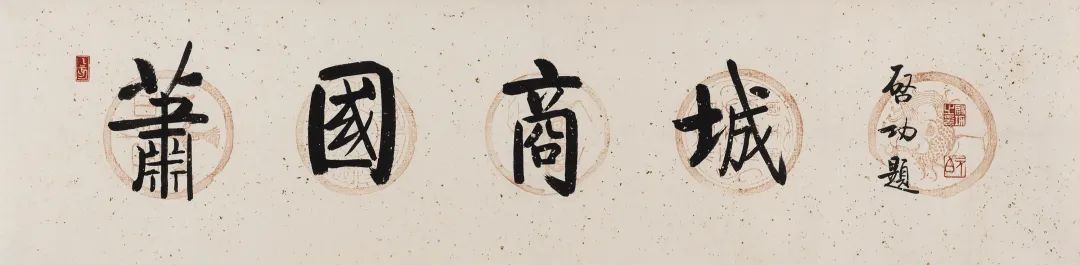 蕭國商城
啓功題